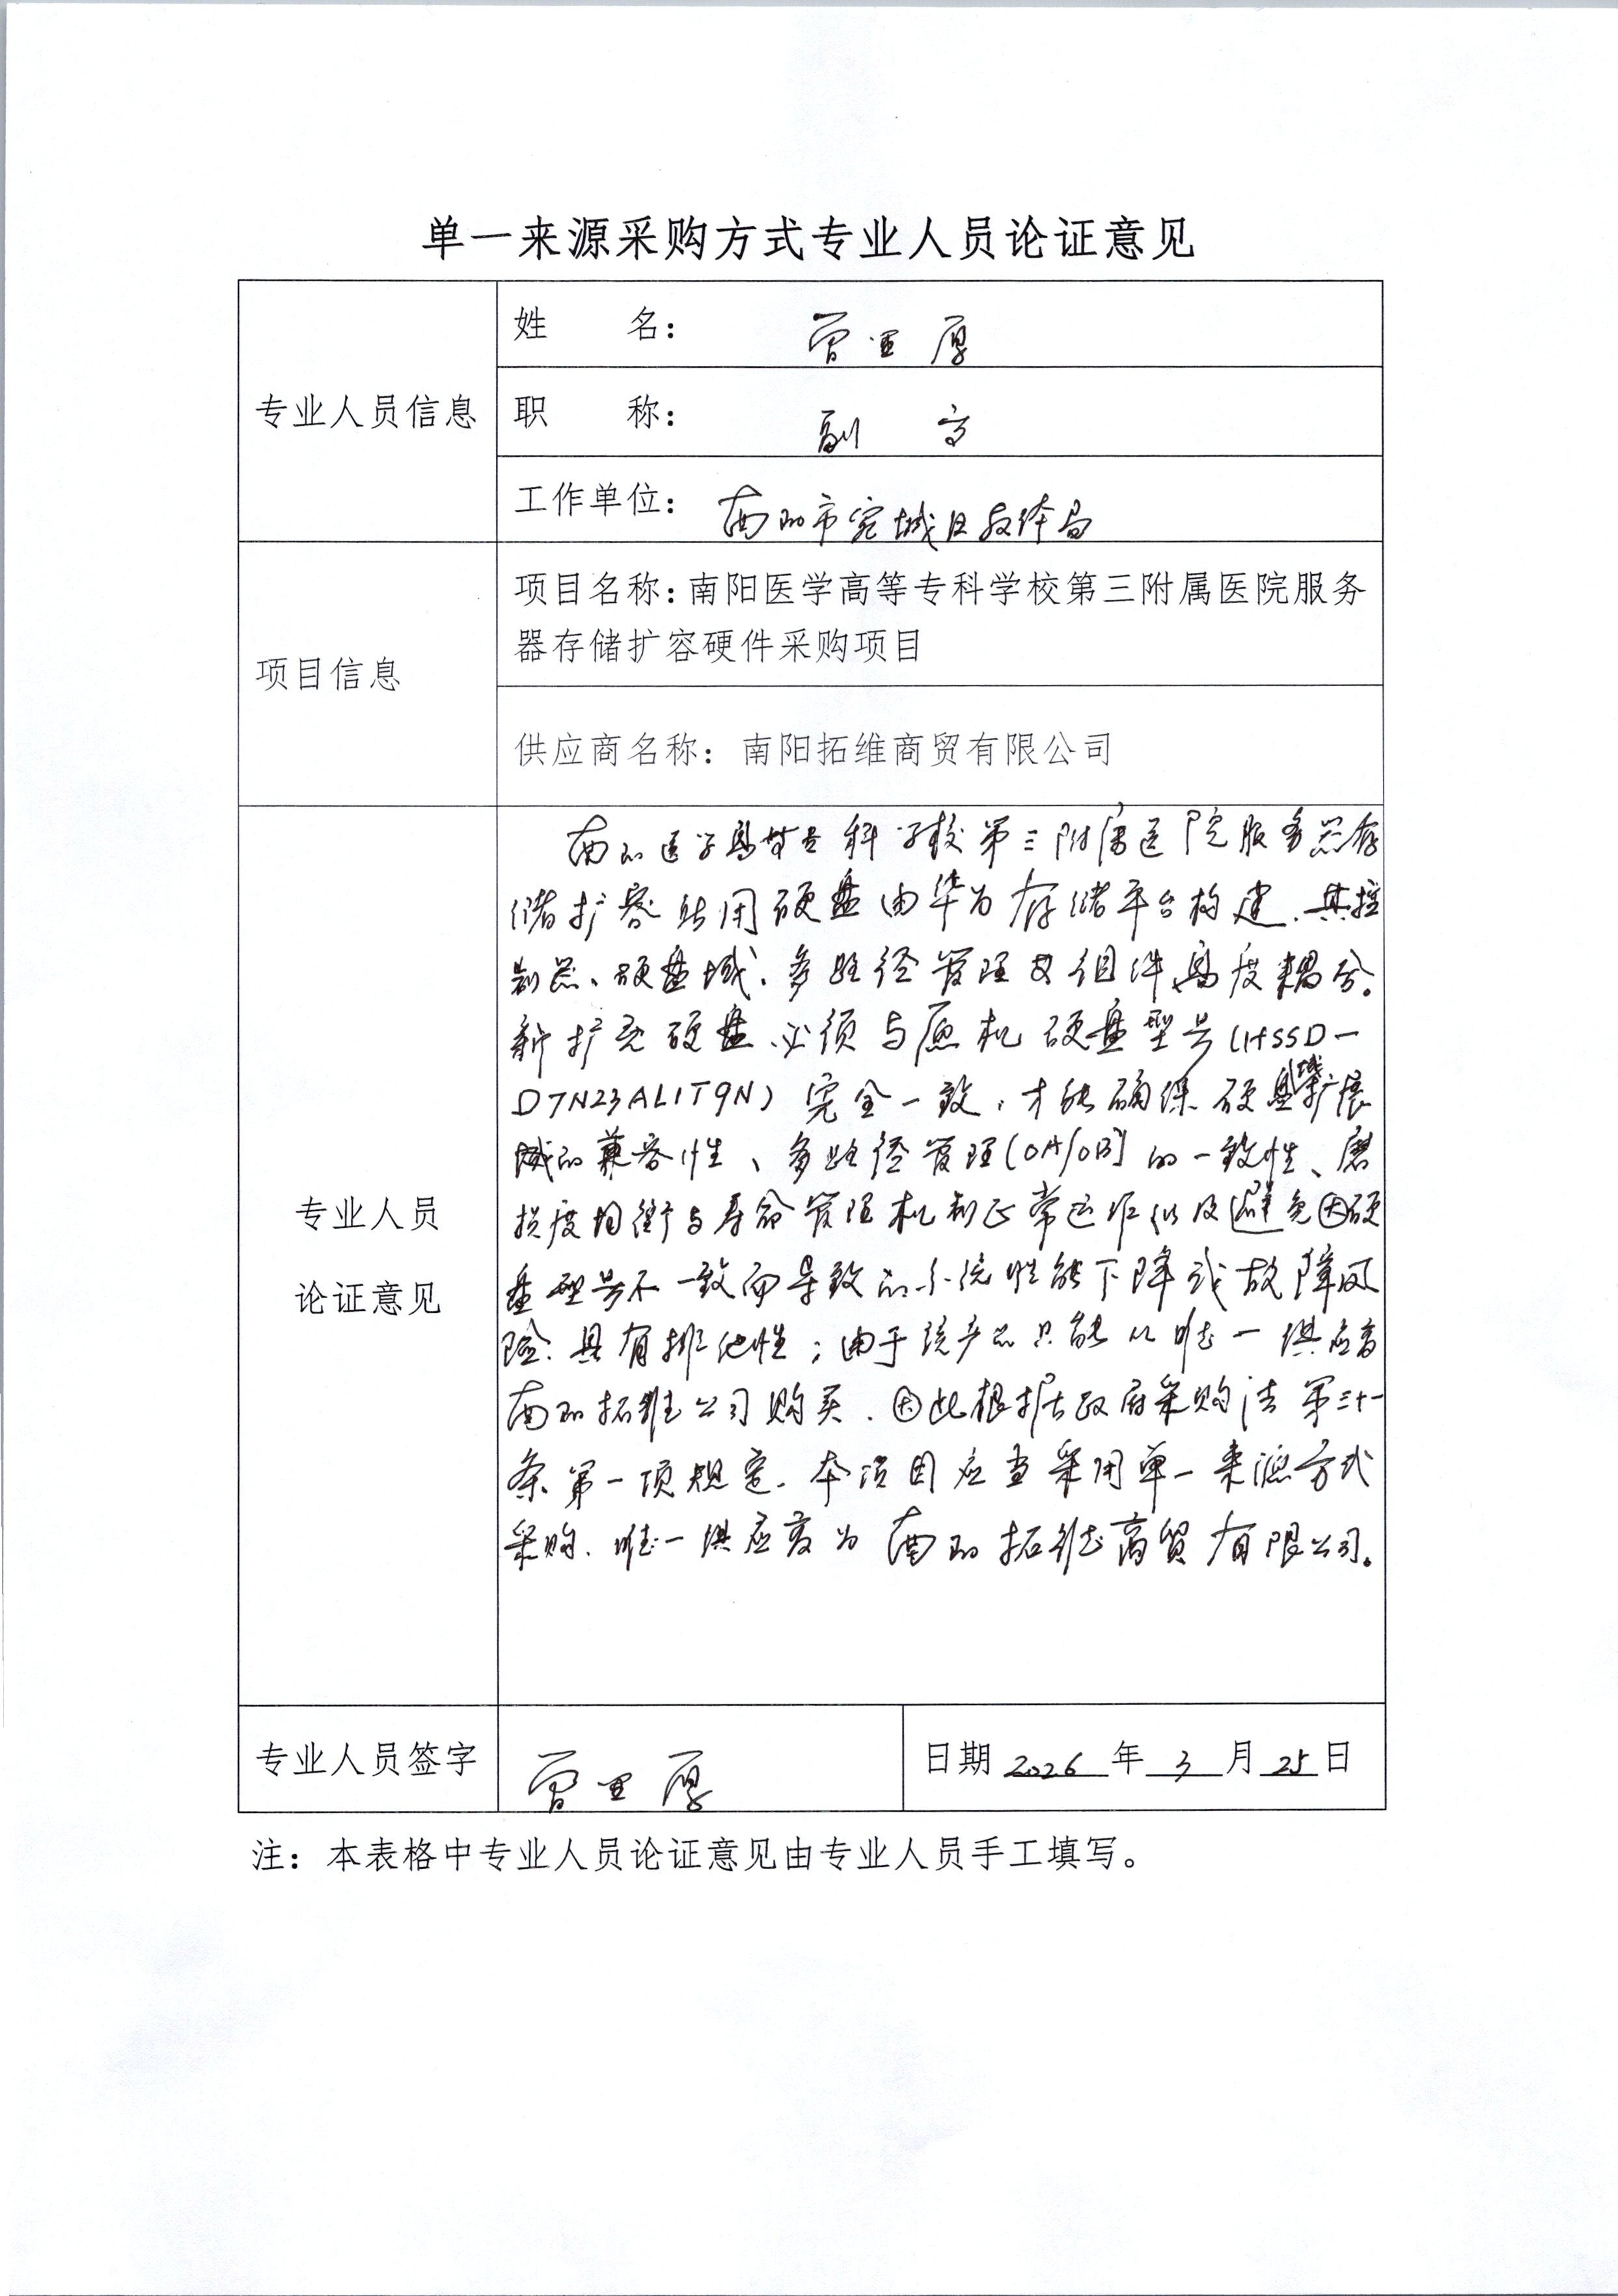 单一来源采购方式专业人员论证意见
专业人员信息
姓 名： 曾 厚
职 称： 副 高
工作单位： 南阳市宛城区教体局
项目信息
项目名称：南阳医学高等专科学校第三附属医院服务
器存储扩容硬件采购项目
供应商名称：南阳拓维商贸有限公司
专业人员
论证意见
南阳医学高等专科学校第三附属医院服务器存
储扩容所用硬盘由华为存储平台构建，其控
制器、硬盘域、多路径管理等组件高度耦合。
新扩充硬盘必须与原机硬盘型号（HSSD-
D7N23AL1T9N）完全一致，才能确保硬盘域扩展
域的兼容性、多路径管理（OA/OB）的一致性、磨
损度均衡与寿命管理机制正常运作以及避免因硬
盘型号不一致而导致的系统性能下降或故障风
险。具有排他性；由于该产品只能从唯一供应商
南阳拓维公司购买，因此根据政府采购法第三十一
条第一项规定，本项目应当采用单一来源方式
采购，唯一供应商为南阳拓维商贸有限公司。
专业人员签字
曾 厚
日期 2026 年 3 月 25 日
注：本表格中专业人员论证意见由专业人员手工填写。